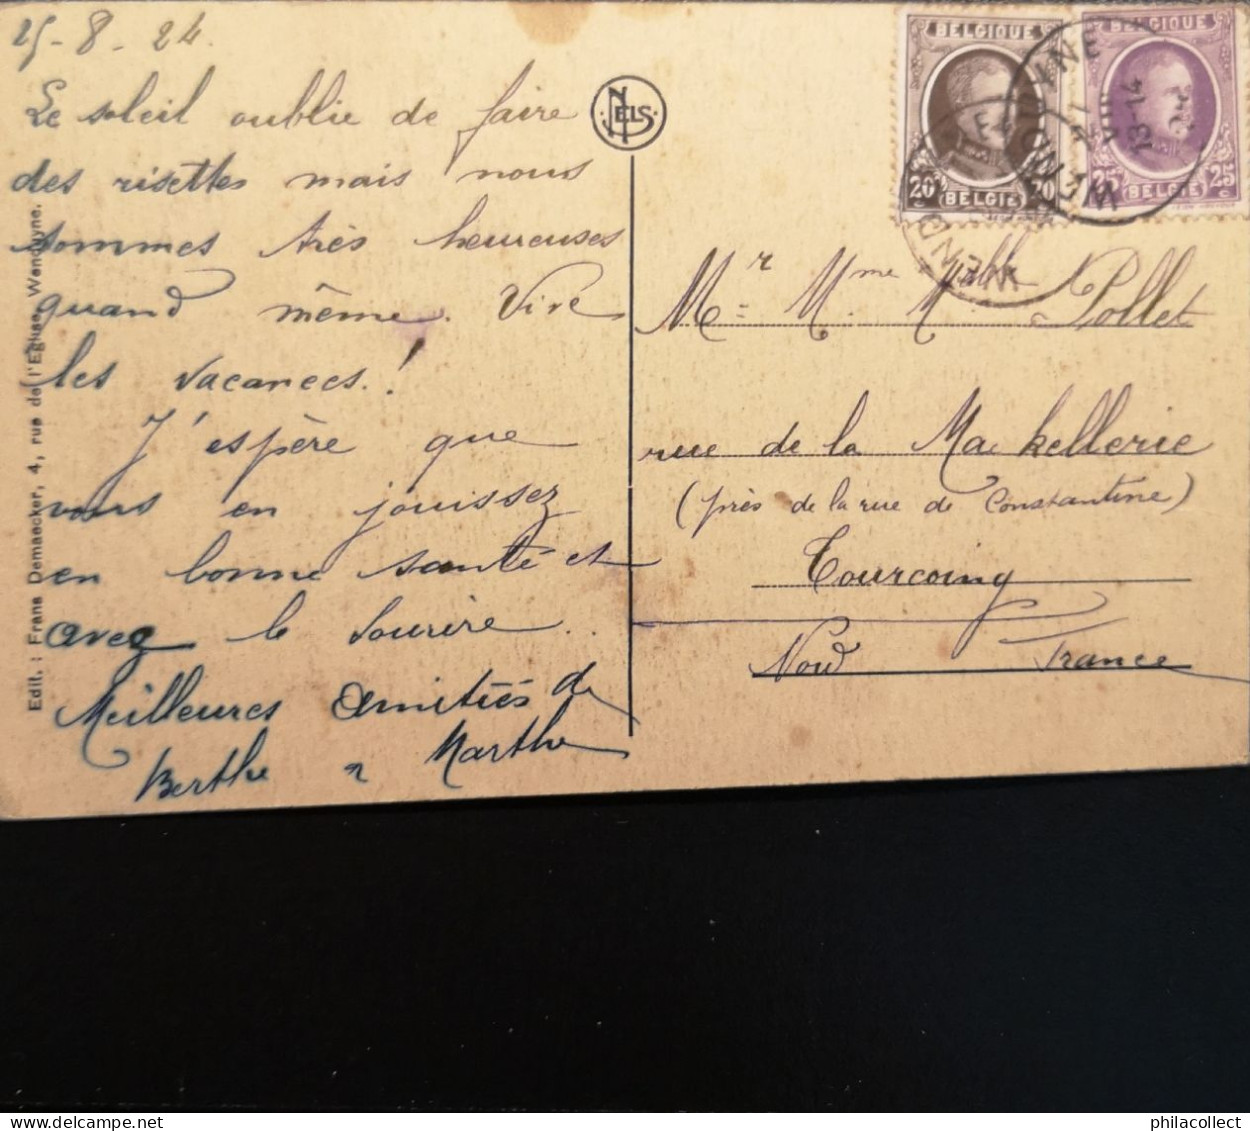 25-8-24.
Le soleil oublie de faire
des risettes mais nous
sommes très heureuses
quand même. Vive
les vacances.!
J'espère que
vous en jouissez
en bonne santé et
avec le sourire..
Meilleures amitiés de
Berthe & Marthe
Edit. : Frans Demaecker, 4, rue de l'Eglise, Wenduyne.
NELS
BELGIQUE
20c 20c
BELGIË
BELGIQUE
25c 25c
BELGIË
WENDUINE
27
VIII
13-14
24
WENDUINE
Mr Mme Melle Pollet
rue de la Mackellerie
(près de la rue de Constantine)
Tourcoing
Nord France
philacollect